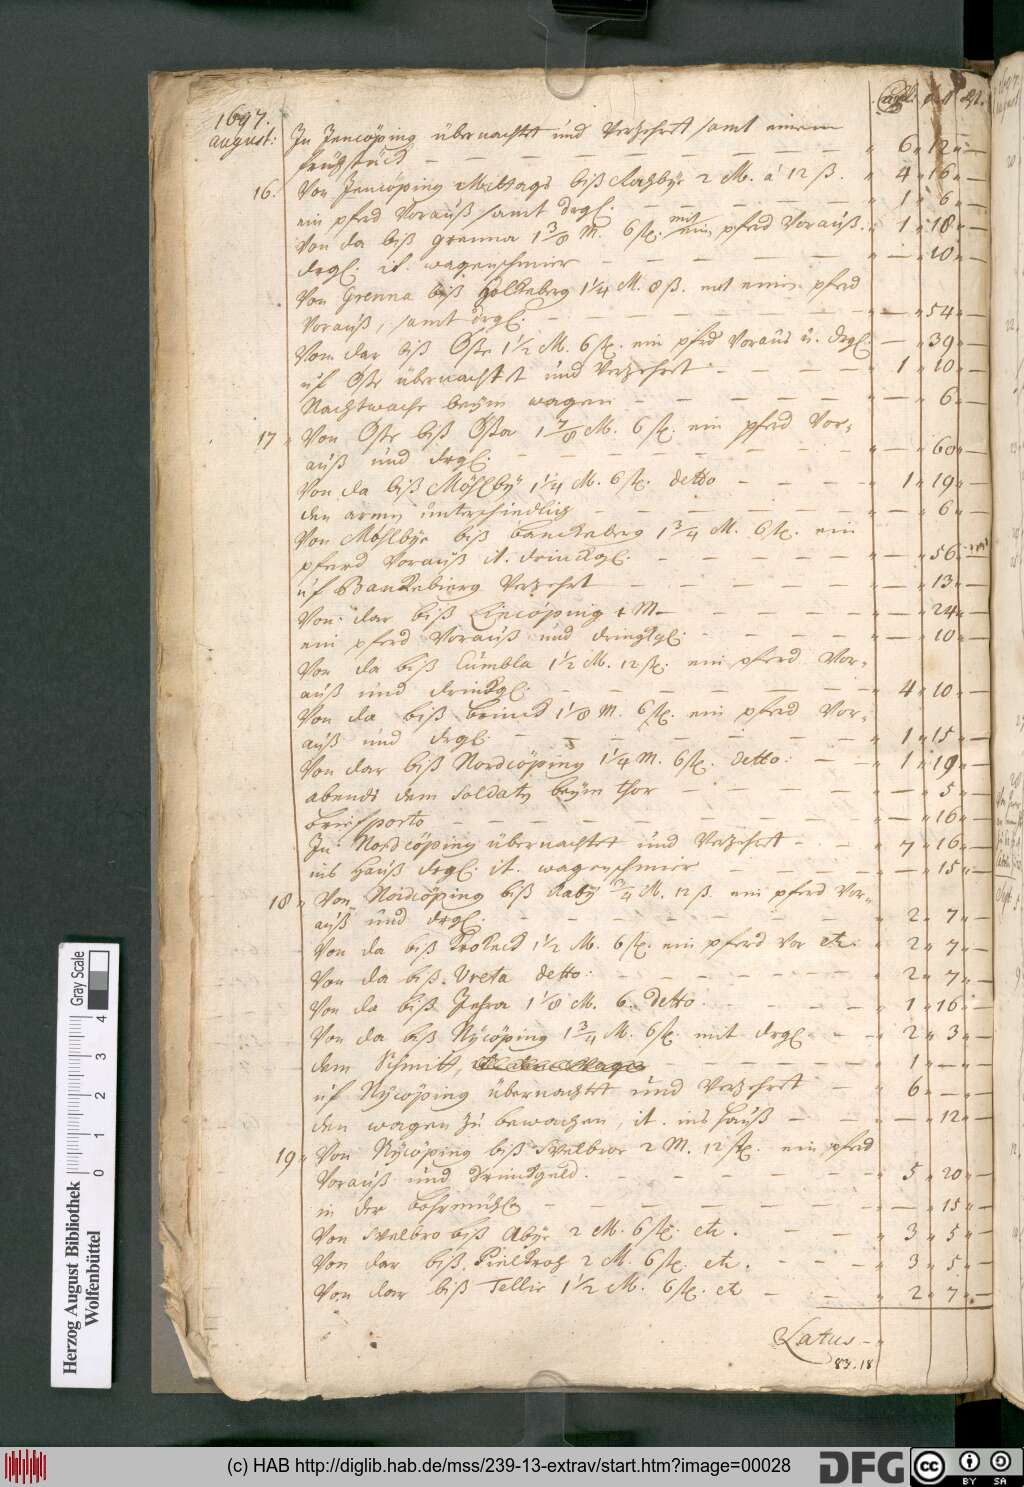 1697.
august: In Jencöping übernachtet und Verzehret samt einem
früestück — 6 " 12 " —
16. Von Jencöping Mittags biß Rachbÿe 2 M. á 12 ß. " 4 " 16 " —
ein pferd Vorauß samt drgl. " 1 " 6 " —
Von da biß grenna 1 3/8 M. 6 st. mit ein pferd Vorauß. " 1 " 18 " —
drgl. it. wagenschmier " — " 10 " —
Von Grenna biß Holkeberg 1 1/4 M. 8 ß. mit einem pferd
Vorauß, samt drgl. " — " 54 " —
Von dar biß Öste 1 1/2 M. 6 st. ein pferd Voraus u. drgl. — " 39 " —
uf Öste übernachtet und Verzehret " 1 " 10 " —
Nachtwache beÿm wagen " — " 6 " —
17 " Von Öste biß Ößta 1 7/8 M. 6 st. ein pferd Vor-
auß und drgl. " — " 60 " —
Von da biß Möhlbÿ 1 1/4 M. 6 st. detto " 1 " 19 " —
den armen unterschiedlich " — " 6 " —
Von Möhlbÿe biß banckeberg 1 3/4 M. 6 st. ein
pferd Vorauß it. drinckgl. " — " 56 "
uf Banckebierg Verzehrt " — " 13 " —
Von dar biß Lincöping 1 M. " — " 24 " —
ein pferd Vorauß und dringkgl. " — " 10 " —
Von da biß Cumbla 1 1/2 M. 12 st. ein pferd Vor-
auß und drinckgl. " 4 " 10 " —
Von da biß brinck 1 1/8 M. 6 st. ein pferd Vor-
auß und drgl. " 1 " 15 " —
Von dar biß Nordcöping 1 1/4 M. 6 st. detto: " 1 " 19 " —
abends dem Soldatn beÿm thor " — " 5 " —
briefporto " — " 16 " —
In Nordcöping übernachtet und Verzehret " 7 " 16 " —
ins Hauß drgl. it. wagenschmier " — " 15 " —
18 " Von Nordcöping biß Rabÿ /4 M. 12 ß. ein pferd Vor-
auß und drgl. " 2 " 7 " —
Von da biß Krokeck 1 1/2 M. 6 st. ein pferd Vor etc. " 2 " 7 " —
Von da biß Vreta detto: " 2 " 7 " —
Von da biß Jehra 1 1/8 M. 6. detto. " 1 " 16 " —
Von da biß Nÿcöping 1 3/4 M. 6 st. mit drgl. " 2 " 3 " —
dem Schmitt, " 1 " — " —
uf Nÿcöping übernachtet und Verzehret " 6 " — " —
den wagen zu bewachen, it. ins hauß " — " 12 " —
19 " Von Nÿcöping biß Svelbroe 2 M. 12 st. ein pferd
Vorauß und Trinckgeld. " 5 " 20 " —
in der bohrmühle " — " 15 " —
Von Svelbro biß Abÿe 2 M. 6 st. etc. " 3 " 5 " —
Von dar biß Pielkrog 2 M. 6 st. etc. " 3 " 5 " —
Von dar biß Tellie 1 1/2 M. 6 st. etc " 2 " 7 " —
Latus — "
83. 18
Herzog August Bibliothek
Wolfenbüttel
0 1 2 3 4
Gray Scale
(c) HAB http://diglib.hab.de/mss/239-13-extrav/start.htm?image=00028
DFG
cc BY SA